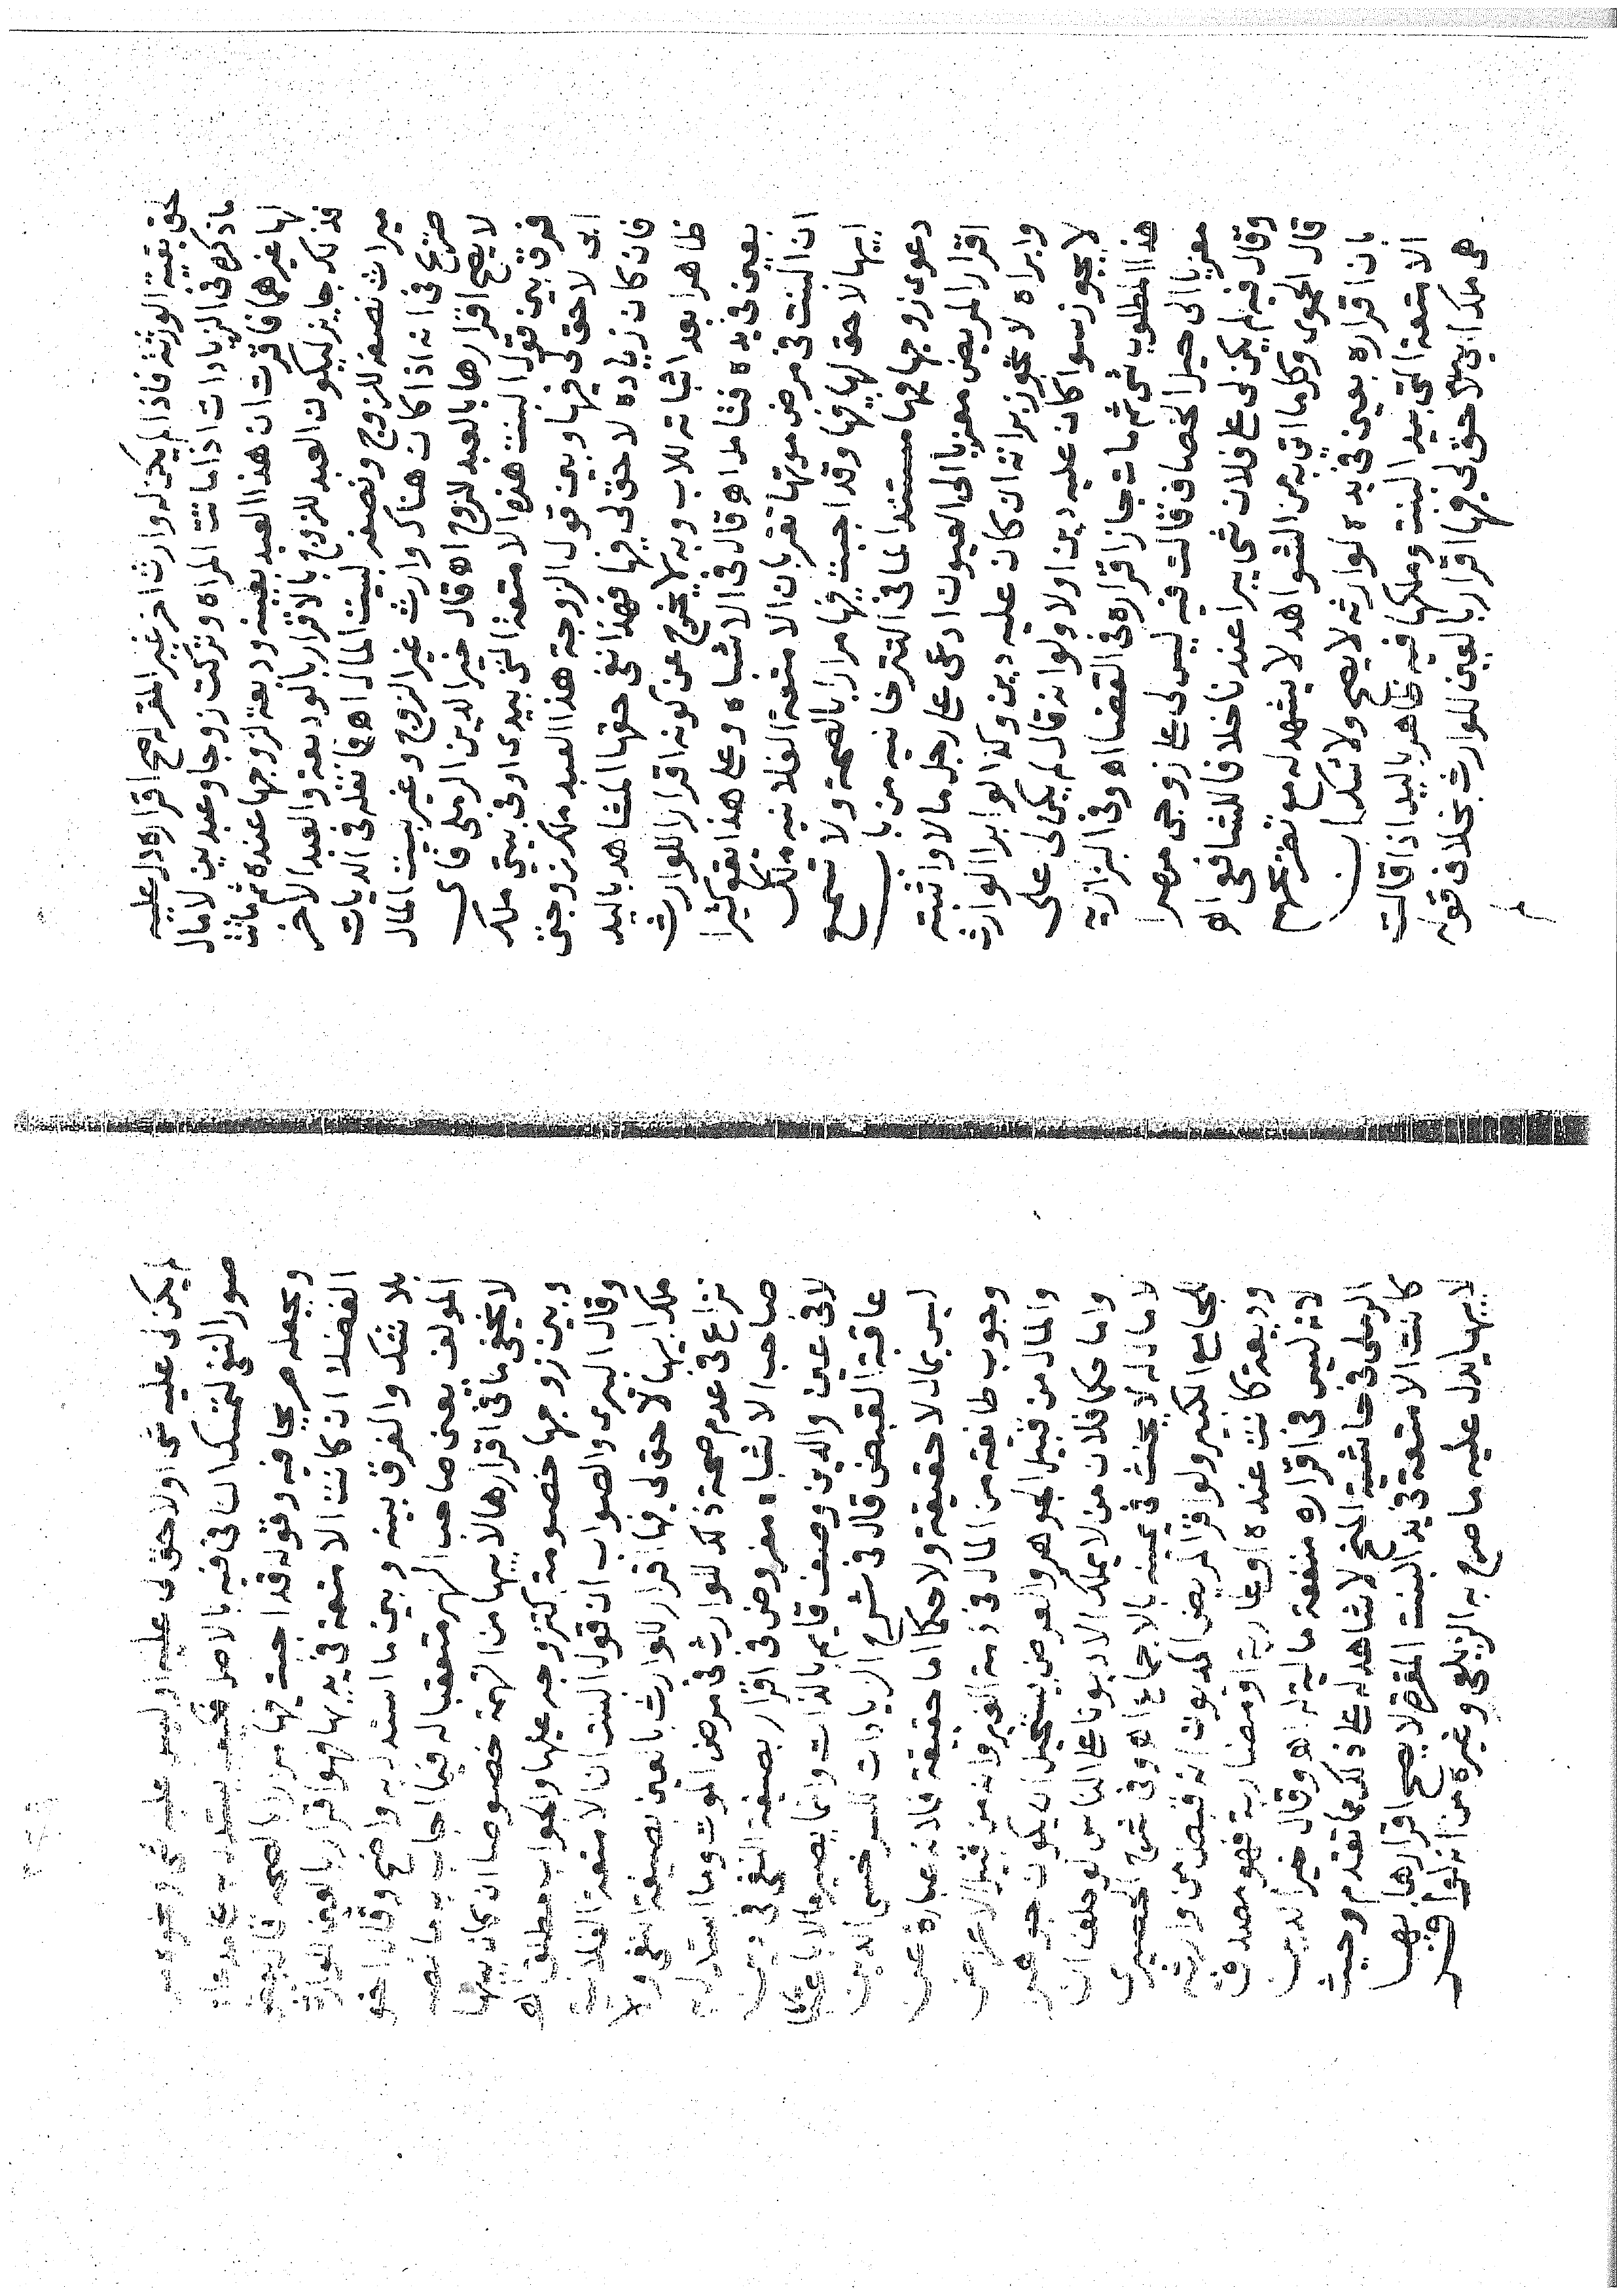 حق بقية الورثة فاذا لم يكن له وارث اخر غير المقر له صح اقراره دل عليه
ما ذكره فى الزيادات اذا ماتت المراه وتركت زوجا وعبدين لا مال
لها غيرهما فاقرت ان هذا العبد بعينه وديعة لزوجها عنده ثم ماتت
فذلك جايز ليكون العبد للزوج بالاقرار بالوديعة والعبد الاخر
ميراث نصفه للزوج ونصفه لبيت المال اه ما نقله فى الديات
صريح فى انه اذا كان هناك وارث غير الزوج وغير بيت المال
لا يصح اقرارها بالعبد للزوج اه قال خير الدين الرملى فاى
فرق بين قول البنت هذه الامتعة التى بيدى او فى بيتى ملك
ابى لا حق لى فيها وبين قول الزوجة هذا العبد ملك زوجى
فان كان زيادة لا حق لى فيها فهذا نفى حقها المشاهد باليد
ظاهرا بعد اثباته للاب وبه لا يخرج عن كونه اقرارا للوارث
بعين فى يده فتامل اه قال فى الاشباه وعلى هذا يقع كثيرا
ان البنت فى مرض موتها تقر بان الامتعة الفلانيه ملك
ابيها لا حق لها فيها وقد اجبت فيها مرارا بالصحة ولا تسمع
دعوى زوجها فيها مستندا لما فى التترخانيه من باب
اقرار المريض معزيا الى العيون ادعى على رجل مالا واثبته
وابراه لا تجوز براته ان كان عليه دين وكذا لو ابرا الوارث
لا يجوز سوا كان عليه دين اولا ولو انه قال لم يكن لى على
هذا المطلوب شى ثم مات جاز اقراره فى القضا اه وفى البزازيه
معزيا الى حيل الخصاف قالت فيه ليس لى على زوجى مهر
وقال فيه لم يكن لى على فلان شى يبرا عندنا خلافا للشافعى اه
قال الحموى وكل ما اتى به من الشواهد لا يشهد له مع تصريحهم
بان اقراره بعين فى يده لوارثه لا يصح ولا شك ان
الامتعة التى بيد البنت وملكها فيه ظاهر باليد اذا قالت
هى ملك ابى لا حق لى فيها اقرار بالعين للوارث بخلاف قوله
لم
لم يكن لى عليه شى او لا حق لى عليه او ليس عليه شى
صور النفى لتمسكنا النافى فيه بالاصل فكيف يستدل به على مدعاه
ويجعله صريحا فيه وقوله قد اجبت فيها مرارا بالصحه قال بعض
الفضلا ان كانت الامتعة فى يديها فهو اقرار بالعين للوارث
بلا شك والفرق بينه وبين ما استدل به واضح وقال اخو
المولف يعنى صاحب النهر متعقبا له فيما اجاب به ما نصه
لا يخفى ما فى اقرارها لابيها من التهمة خصوصا ان كان بينها
وبين زوجها خصومة كتزوجه عليها والجواب مطلق اه
وقال البيرى والصواب ان قول البنت ان الامتعة الفلانيه
ملك ابيها لا حق لى فيها اقرار للوارث بالعين بصيغة النفى ولا
نزاع فى عدم صحة ذلك للوارث فى مرض الموت وما استدل به
صاحب الاشباه مفروض فى اقرار بصيغة النفى فى دين
لا فى عين والدين وصف قايم بالذات وانما يصير مالا باعتبار
عاقبة القبض قال فى شرح الزيادات للسرخسى الدين
ليس بمال لا حقيقة ولا حكما اما حقيقة فلانه عبارة عن
وجوب طائفة من المال فى ذمة الغير وانه من قبيل الاعراض
والمال من قبيل الجوهر والعرض يستحيل ان يكون جوهر
واما حكما فلان من لا يملك الا ديونا على الناس لو حلف ان
لا مال له لا يحنث فى يمينه بالاجماع اه وفى شرح الحصيرى
للجامع الكبير ولو اقر المريض المديون انه قبض من وارثه
وديعة كانت عنده او عارية او مضاربة فهو مصدق
لانه ليس فى اقراره منفعة مالية له اه وقال خير الدين
الرملى فى حاشية المنح لا شاهد له على ذلك مما تقدم وحيث
كانت الامتعة فى يد البنت المقرة لا يصح اقرارها بها
لابيها يدل عليه ما صرح به الزيلعى وغيره من انه لو اقر